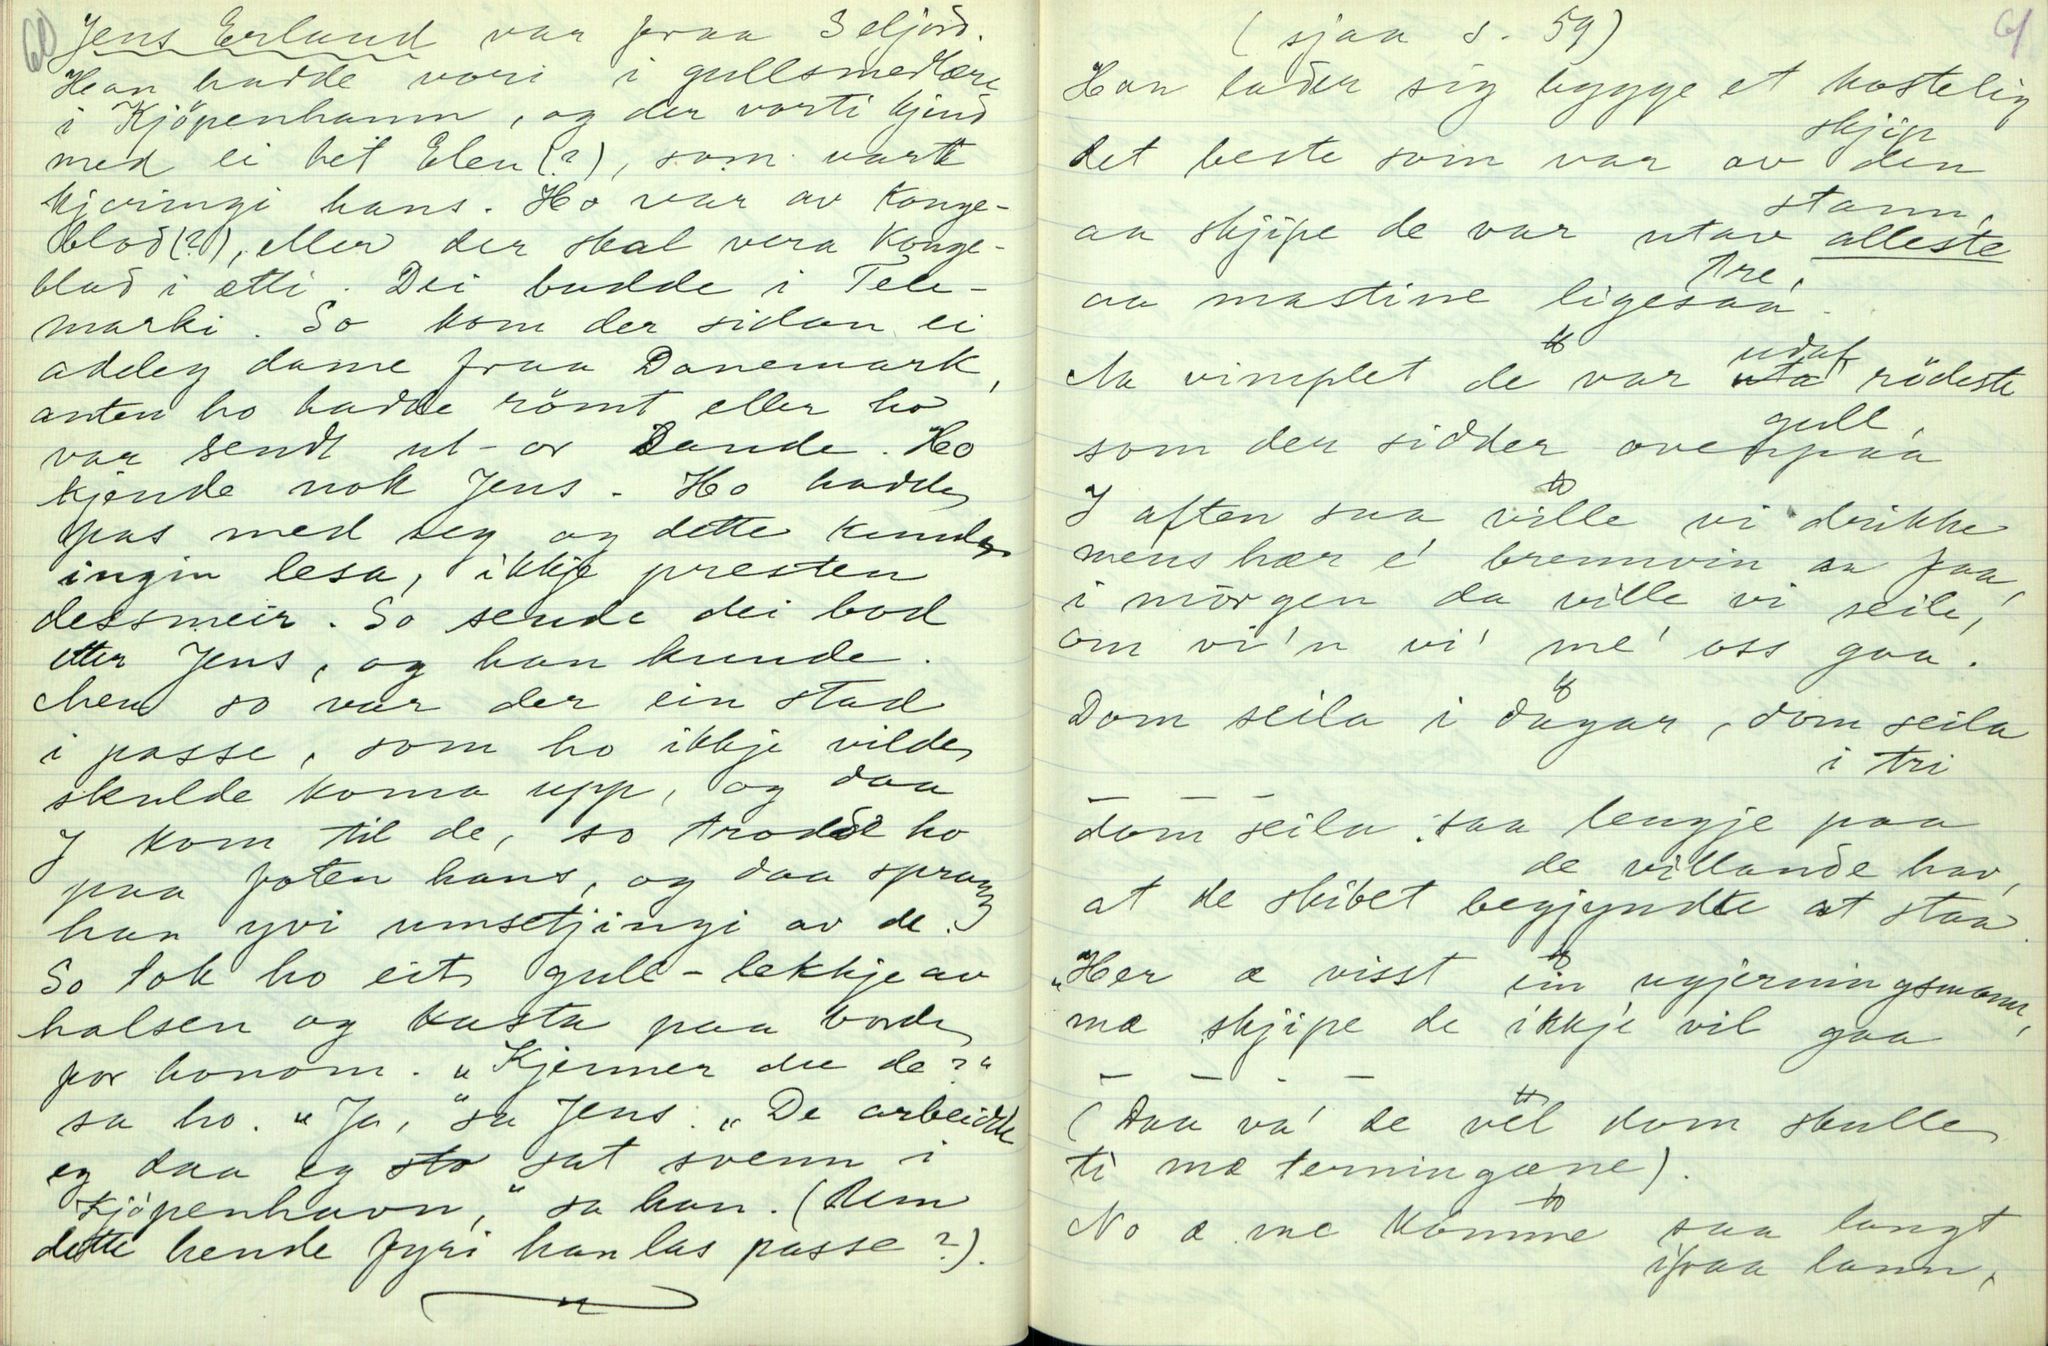 60
Jens Erland var fraa Seljord.
Han hadde vori i gullsmedlære
i Kjöpenhamn, og der vorti kjend
med ei het Elen (?), som vart
kjæringi hans. Ho var av konge-
blod (?), eller der skal vera konge-
blod i ætti. Dei budde i Tele-
marki. So kom der sidan ei
adeleg dame fraa Danemark,
anten ho hadde römt eller ho
var sendt ut-or lande. Ho
kjende nok Jens. Ho hadde
pas med seg og dette kunde
ingin lesa, ikkje presten
dessmeir. So sende dei bod
etter Jens, og han kunde.
Men so var der ein stad
i passe, som ho ikkje vilde
skulde koma upp, og daa
J kom til de, so trodde ho
paa foten hans, og daa sprang
han yvi umsetjingi av de.
So tok ho eit gull-lekkje av
halsen og kasta paa borde
for honom. „Kjenner du de?"
sa ho. „Ja," sa Jens. „De arbeidde
eg daa eg sto sat svenn i
Kjöpenhavn," sa han. (Um
dette hende fyri han las passe?).
61
(sjaa s. 59)
Han lader sig bygge et kostelig
skjip
det beste som var av den
stann,
aa skjipe de var utav alleste
tre,
aa mastine ligesaa.
Aa vimplet de var uta udaf rödeste
gull,
som der sidder ovenpaa
I aften saa ville vi drikke
mens hær e' brennvin aa faa,
i mörgen da ville vi seile,
om vi'n vi' me' oss gaa.
Dom seila i dagar, dom seila
i tri
dom seila saa lengje paa
de villande hav,
at de skibet begjyndte at staa.
„Her æ visst ein ugjerningsmann,
mæ skjipe de ikkje vil gaa
(Daa va' de vel dom skulle
ti mæ terningæne).
No æ me komme saa langt
ifraa lann,